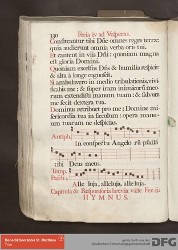 130 Feria iv ad Vesperas.
Confiteantur tibi Dñe omnes reges terræ:
quia audierunt omnia verba oris tui.
Et cantent in viis Dñi: quoniam magna
est gloria Domini.
Quoniam excelsus Dñs & humilia respicit:
& alta à longe cognoscit.
Si ambulavero in medio tribulationis, vivi-
ficabis me: & super iram inimicorū meo-
rum extendisti manum tuam: & salvum
me fecit dextera tua.
Dominus retribuet pro me: Domine mi-
sericordia tua in sæculum: opera manu-
um tuarum ne despicias.
Antiph.
In conspectu Angelorū psallā
tibi Deus meus.
Temp. Pasch.
Alleluja, alleluja, alleluja.
HYMNUS
DFG